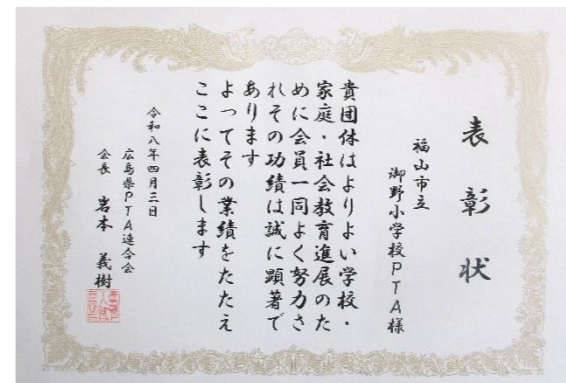 表彰状
福山市立
御野小学校PTA様
貴団体はよりよい学校・
家庭・社会教育進展のた
めに会員一同よく努力さ
れその功績は誠に顕著で
あります
よってその業績をたたえ
ここに表彰します
令和八年四月三日
広島県PTA連合会
会長 岩本 義樹